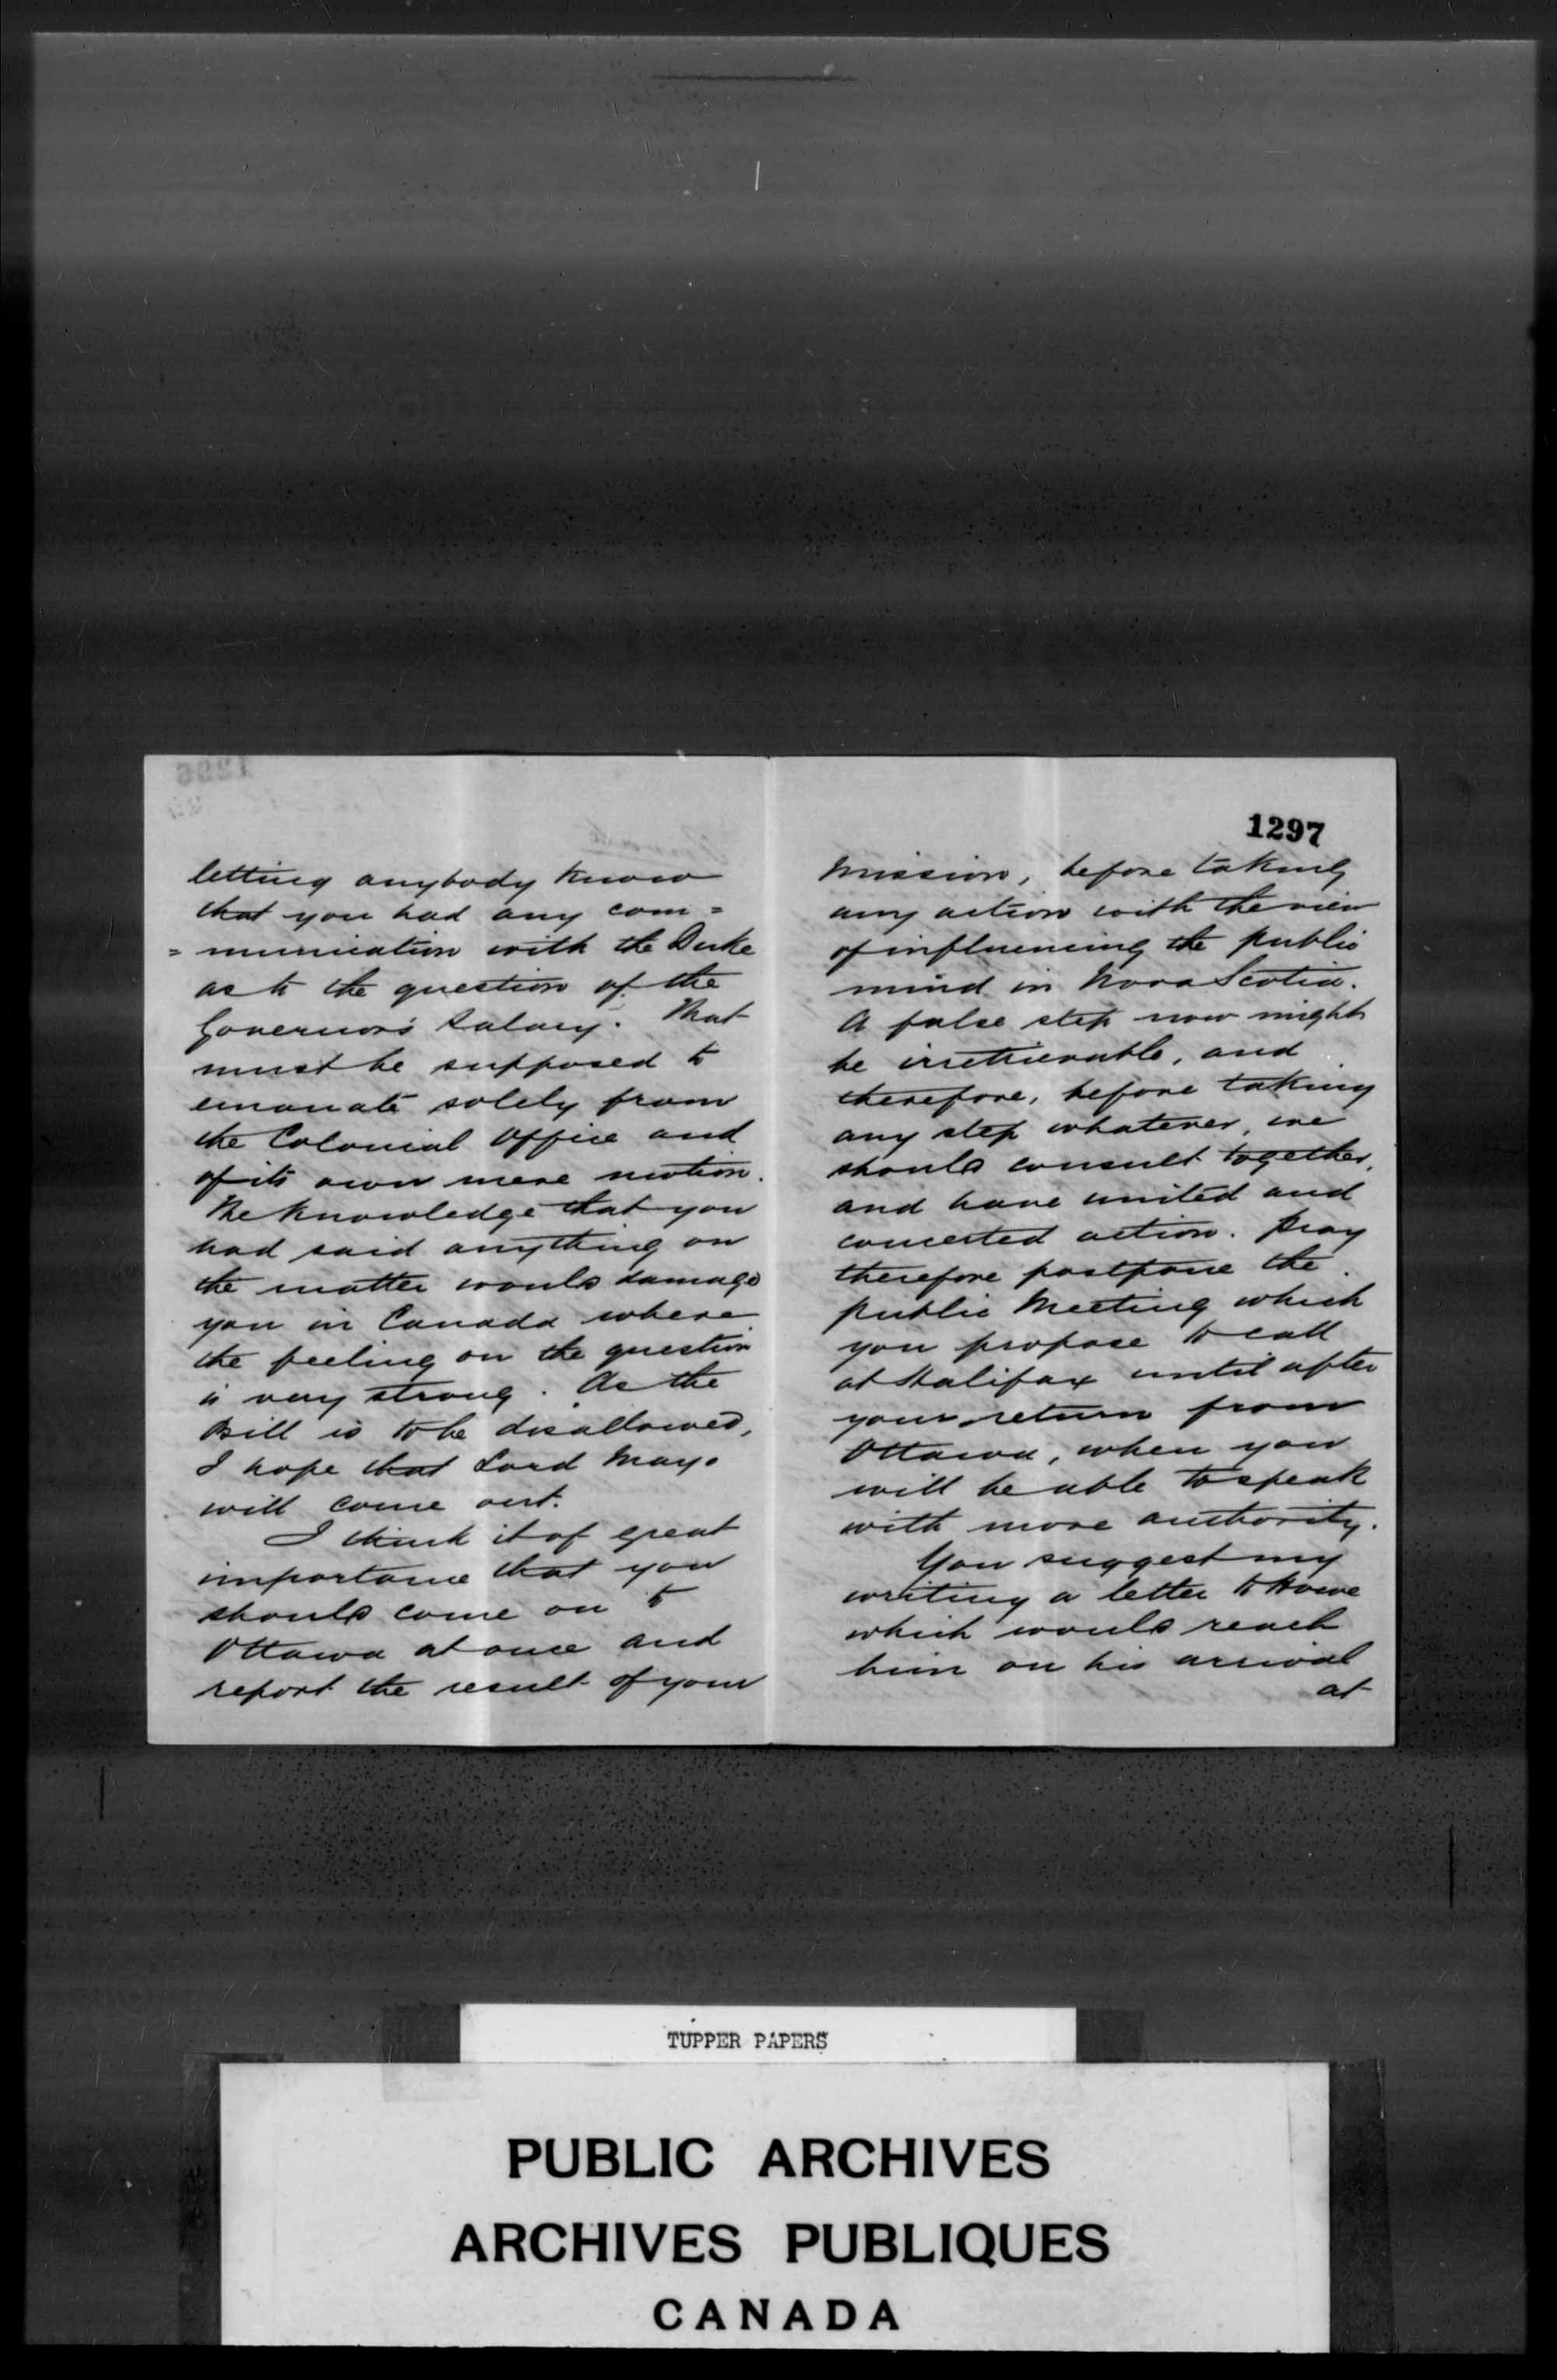 letting anybody know
that you had any com=
=munication with the Duke
as to the question of the
Governor's Salary. That
must be supposed to
emanate solely from
the Colonial Office and
of its own mere motion.
The knowledge that you
had said anything on
the matter would damage
you in Canada where
the feeling on the question
is very strong. As the
Bill is to be disallowed,
I hope that Lord Mayo
will come out.
I think it of great
importance that you
should come on to
Ottawa at once and
report the result of your
1297
mission, before taking
any action with the view
of influencing the public
mind in Nova Scotia.
A false step now might
be irretrievable, and
therefore, before taking
any step whatever, we
should consult together,
and have united and
concerted action. Pray
therefore postpone the
public Meeting which
you propose to call
at Halifax until after
your return from
Ottawa, when you
will be able to speak
with more authority.
You suggest my
writing a letter to Howe
which would reach
him on his arrival
at
TUPPER PAPERS
PUBLIC ARCHIVES
ARCHIVES PUBLIQUES
CANADA